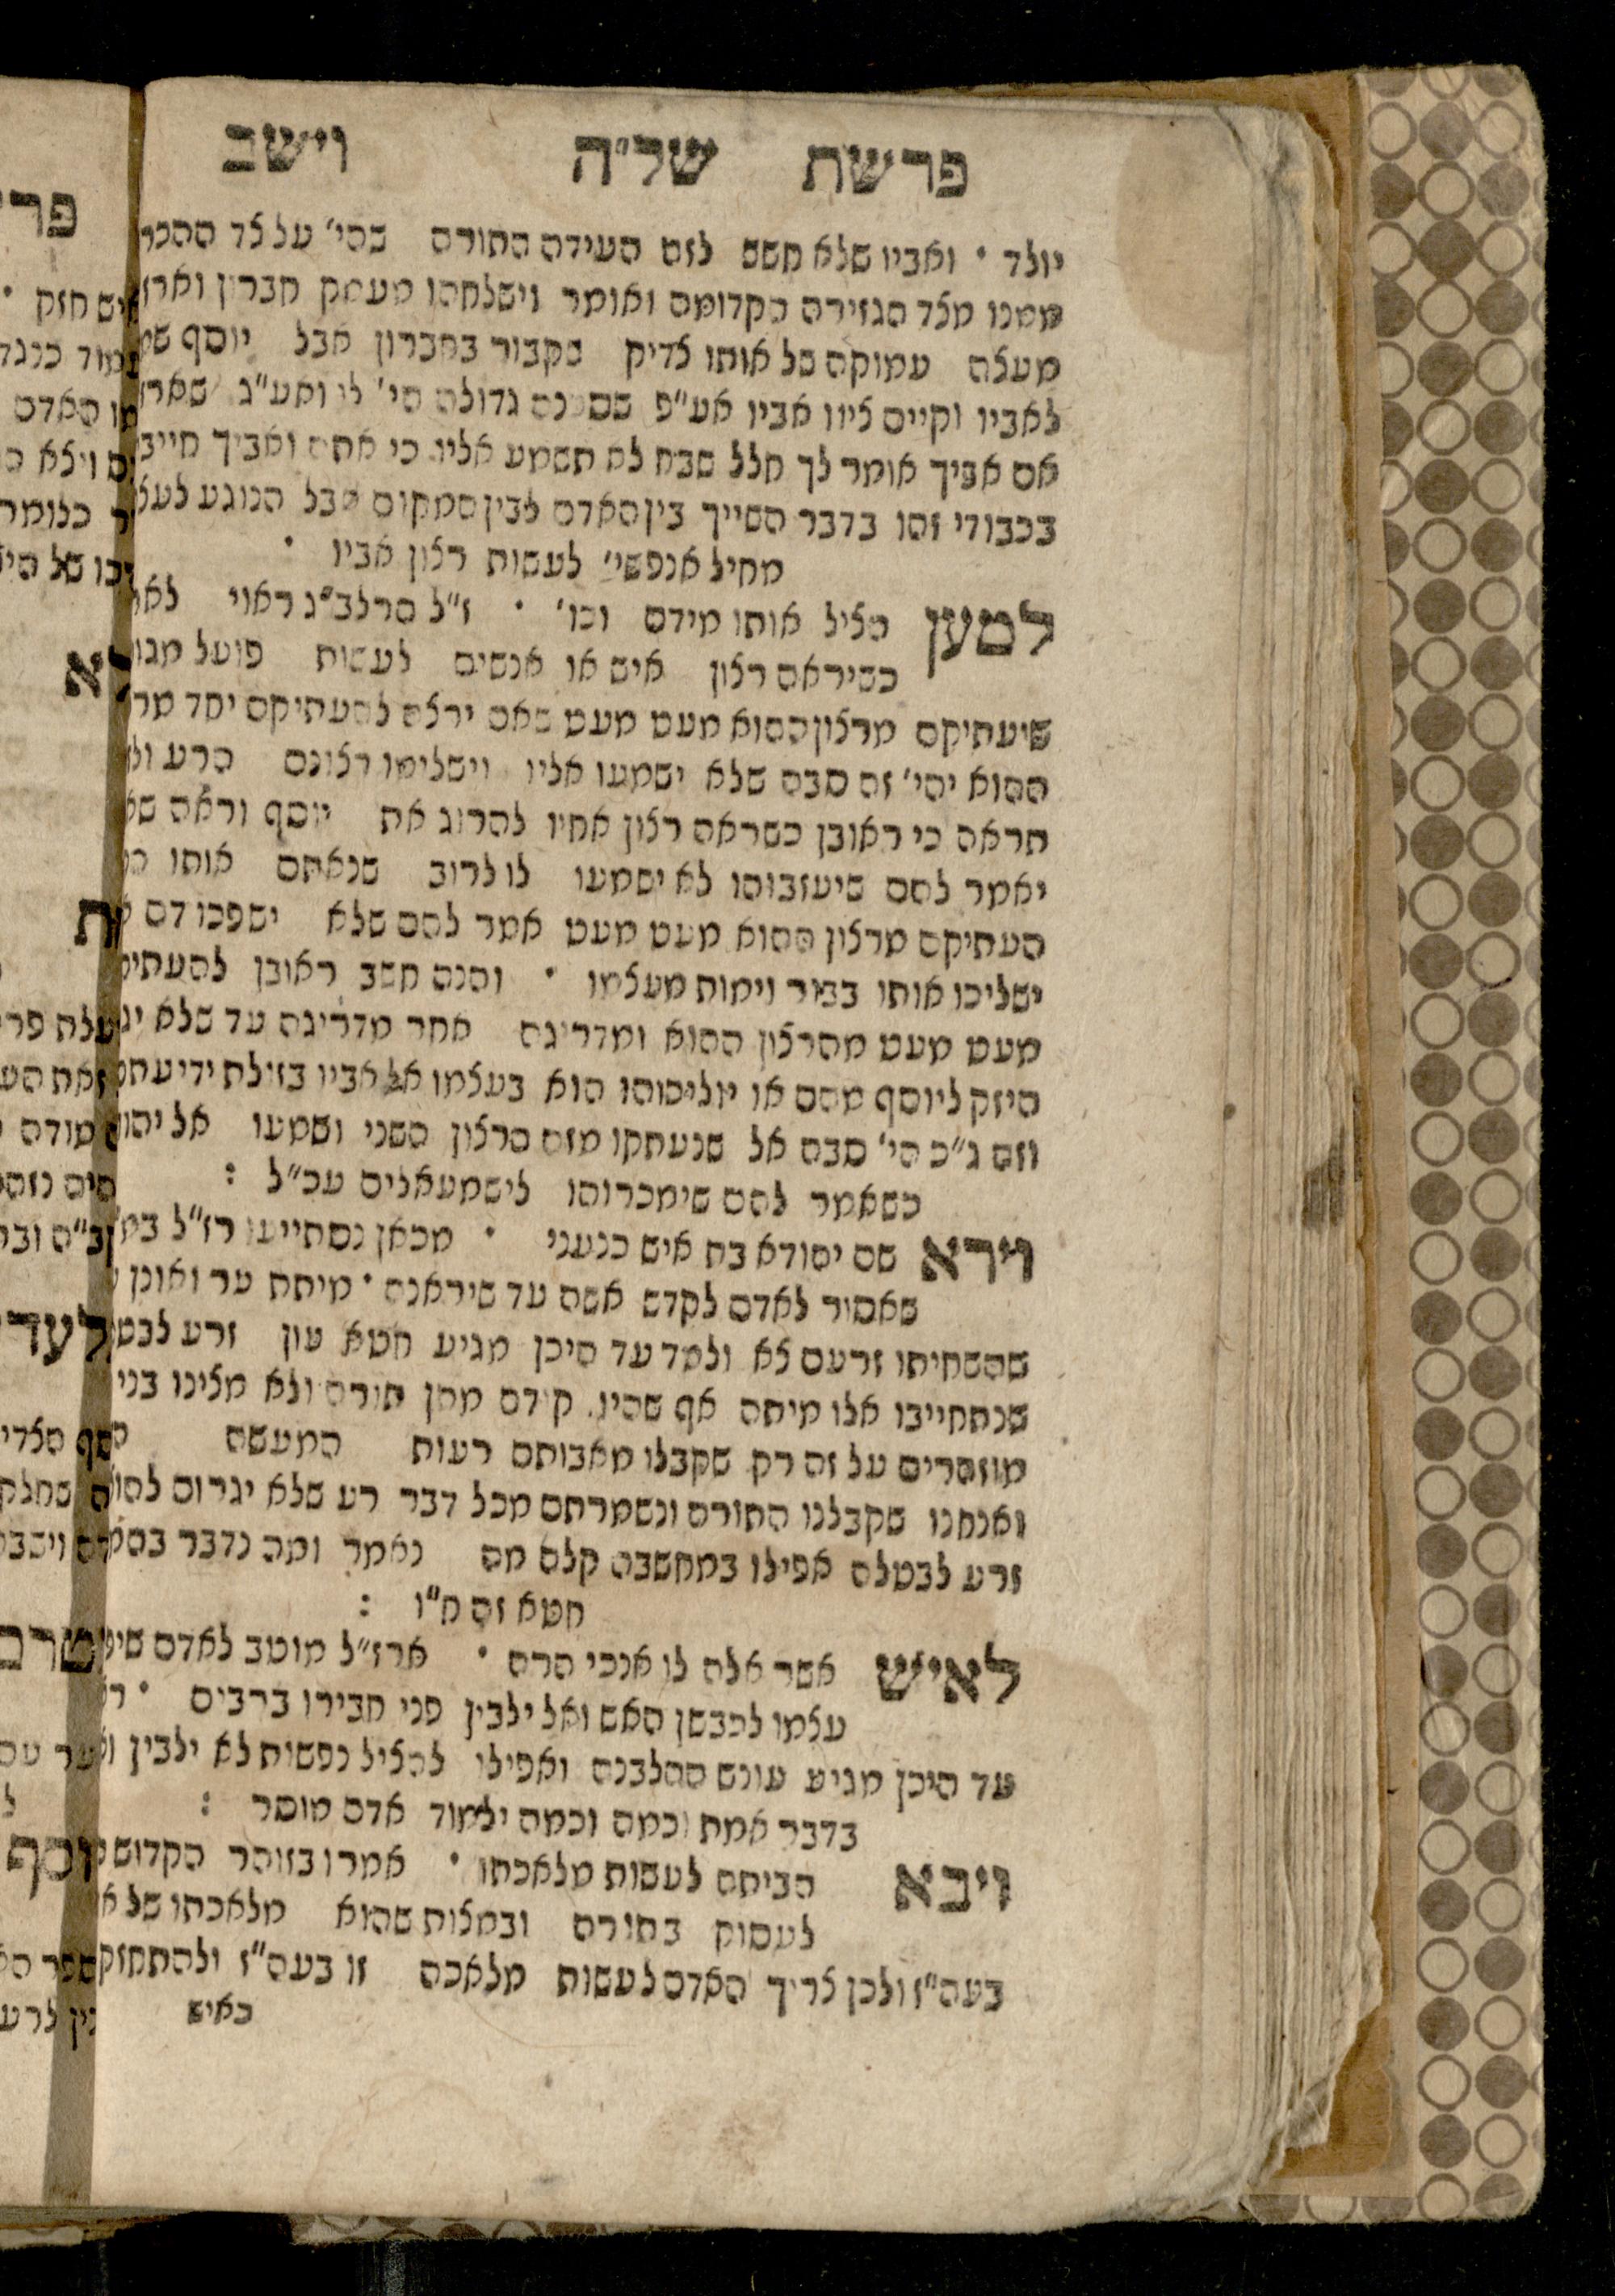 פרשת של״ה וישב
יולד · ואביו שלא חשש לזה העידה התורה בהי׳ על צד ההכר
ממנו מצד הגזירה הקדומה ואומר וישלחהו מעמק חברון וארז
מעצה עמוקה של אותו צדיק הקבור בחברון אבל יוסף שמ
לאביו וקיים ציוו אביו אע״פ שסכנה גדולה הי׳ לו ואע״ג שארז
אם אביך אומר לך חלל שבת לא תשמע אליו כי אתה ואביך חייבי
בכבודי זהו בדבר השייך בין האדם לבין המקום אבל הנוגע לעצ
מחיל אנפשי׳ לעשות רצון אביו ·
למען הציל אותו מידם וכו׳ · ז״ל הרלב״ג ראוי לאד
כשיראה רצון איש או אנשים לעשות פועל מגו
שיעתיקם מרצון ההוא מעט מעט שאם ירצה להעתיקם יחד מר
ההוא יהי׳ זה סבה שלא ישמעו אליו וישלימו רצונם הרע ול
תראה כי ראובן כשראה רצון אחיו להרוג את יוסף וראה שא
יאמר להם שיעזבוהו לא ישמעו לו לרוב שנאתם אותו הנ
העתיקם מרצון ההוא מעט מעט אמר להם שלא ישפכו דם א
ישליכו אותו בבור וימות מעצמו · והנה חשב ראובן להעתיק
מעט מעט מהרצון ההוא ומדריגה אחר מדריגה עד שלא יגי
היזק ליוסף מהם או יוליכוהו הוא בעצמו אל אביו בזולת ידיעתם
וזה ג״כ הי׳ סבה אל שנעתקו מזה הרצון השני ושמעו אל יהוד
כשאמר להם שימכרוהו לישמעאלים עכ״ל :
וירא שם יהודא בת איש כנעני · מכאן נסתייעו רז״ל במ
שאסור לאדם לקדש אשה עד שיראנה · מיתת ער ואונן
שהשחיתו זרעם צא ולמד עד היכן מגיע חטא עון זרע לבט
שנתחייבו אלו מיתה אף שהיו קודם מתן תורה ולא מצינו בני
מוזהרים על זה רק שקבלו מאבותם רעות המעשה
ואנחנו שקבלנו התורה ונשמרתם מכל דבר רע שלא יגרום להוצ
זרע לבטלה אפילו במחשבה קלה מה נאמר ומה נדבר בסמ
חטא זה ח״ו :
לאיש אשר אלה לו אנכי הרה · ארז״ל מוטב לאדם שיפ
עצמו לכבשן האש ואל ילבין פני חבירו ברבים · רא
עד היכן מגיע עונש ההלבנה ואפילו להציל נפשות לא ילבין וא
בדבר אמת וכמה וכמה ילמוד אדם מוסר :
ויבא הביתה לעשות מלאכתו · אמרו בזוהר הקדוש
לעסוק בתורה ובמצות שהוא מלאכתו של א
בעה״ז ולכן צריך האדם לעשות מלאכה זו בעה״ז ולהתחזק
כאיש
פר
איש חזק ·
עמוד כנגד
האדם
ויצא
כלומר
של
לא
ת
פרי
זאת
מודה
לעדי
וישב
טרם
עם
יוסף
ספר
בין לרע